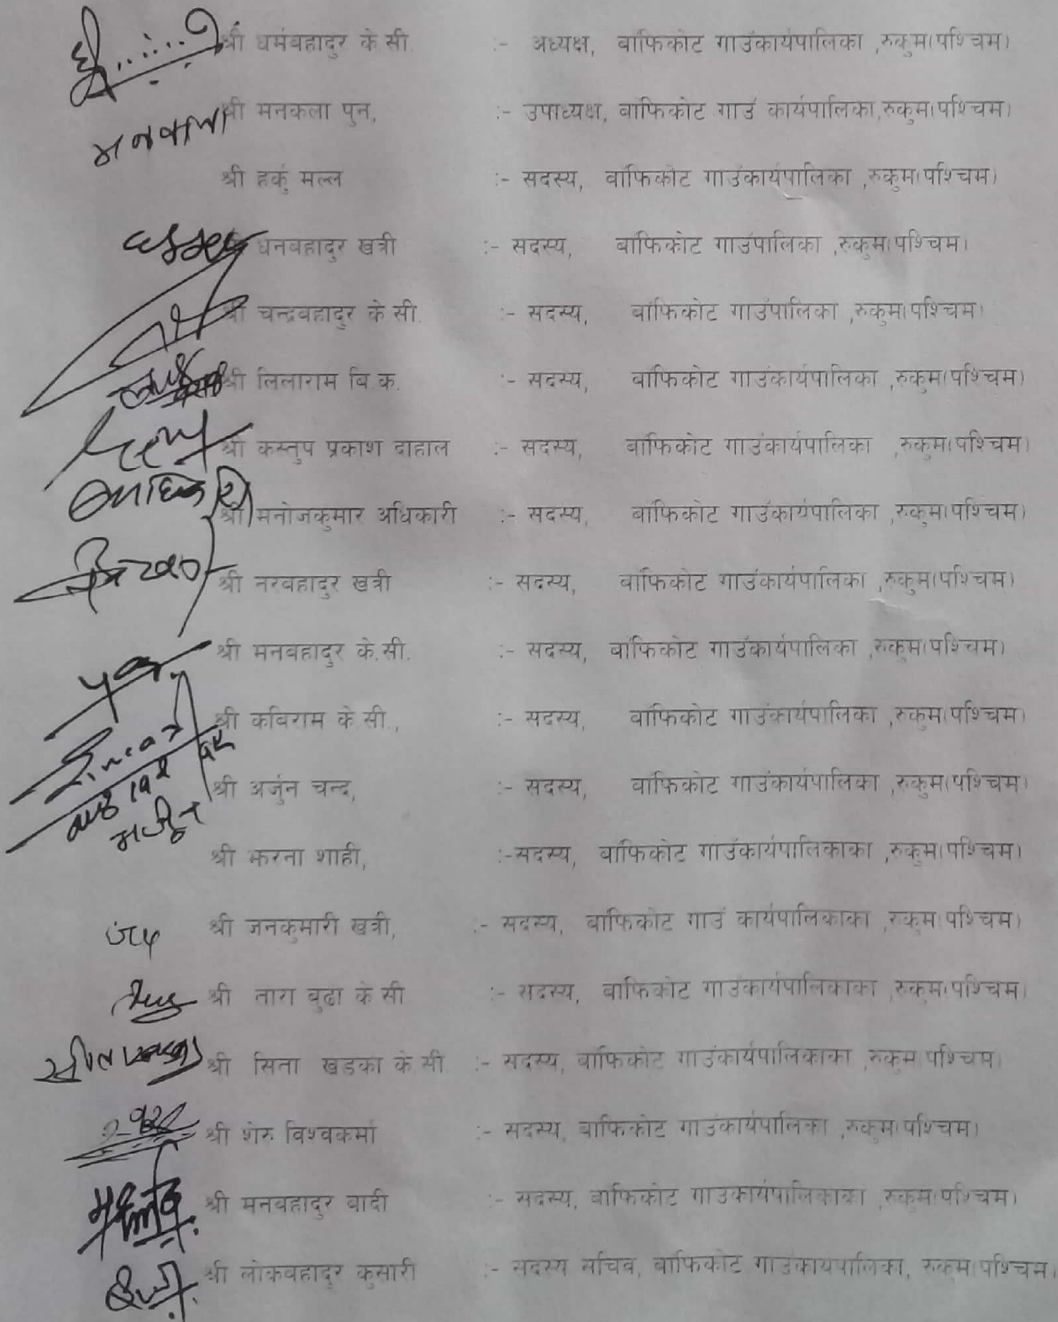 श्री धर्मबहादुर के.सी. :- अध्यक्ष, बांफिकोट गाउंकार्यपालिका ,रुकुम(पश्चिम)
श्री मनकला पुन, :- उपाध्यक्ष, बांफिकोट गाउं कार्यपालिका,रुकुम(पश्चिम)
मनकला
श्री हर्कु मल्ल :- सदस्य, बांफिकोट गाउंकार्यपालिका ,रुकुम(पश्चिम)
श्री धनबहादुर खत्री :- सदस्य, बांफिकोट गाउंपालिका ,रुकुम(पश्चिम)
श्री चन्द्रबहादुर के.सी. :- सदस्य, बांफिकोट गाउंपालिका ,रुकुम(पश्चिम)
श्री लिलाराम बि.क. :- सदस्य, बांफिकोट गाउंकार्यपालिका ,रुकुम(पश्चिम)
श्री कस्तुप प्रकाश दाहाल :- सदस्य, बांफिकोट गाउंकार्यपालिका ,रुकुम(पश्चिम)
श्री मनोजकुमार अधिकारी :- सदस्य, बांफिकोट गाउंकार्यपालिका ,रुकुम(पश्चिम)
श्री नरबहादुर खत्री :- सदस्य, बांफिकोट गाउंकार्यपालिका ,रुकुम(पश्चिम)
श्री मनबहादुर के.सी. :- सदस्य, बांफिकोट गाउंकार्यपालिका ,रुकुम(पश्चिम)
श्री कबिराम के.सी., :- सदस्य, बांफिकोट गाउंकार्यपालिका ,रुकुम(पश्चिम)
श्री अर्जुन चन्द, :- सदस्य, बांफिकोट गाउंकार्यपालिका ,रुकुम(पश्चिम)
श्री झरना शाही, :-सदस्य, बांफिकोट गाउंकार्यपालिकाका ,रुकुम(पश्चिम)
श्री जनकुमारी खत्री, :- सदस्य, बांफिकोट गाउं कार्यपालिकाका ,रुकुम(पश्चिम)
श्री तारा बुढा के.सी :- सदस्य, बांफिकोट गाउंकार्यपालिकाका ,रुकुम(पश्चिम)
श्री सिता खडका के.सी. :- सदस्य, बांफिकोट गाउंकार्यपालिकाका ,रुकुम(पश्चिम)
श्री शेरु विश्वकर्मा :- सदस्य, बांफिकोट गाउंकार्यपालिका ,रुकुम(पश्चिम)
श्री मनबहादुर बादी :- सदस्य, बांफिकोट गाउंकार्यपालिकाका ,रुकुम(पश्चिम)
श्री लोकबहादुर कुसारी :- सदस्य सचिव, बांफिकोट गाउंकार्यपालिका, रुकुम(पश्चिम)